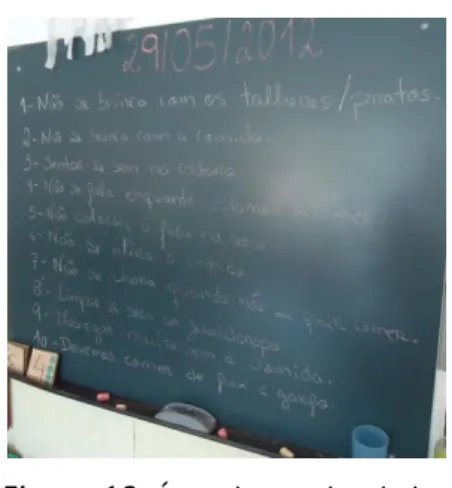 29/05/2012
1-Não se brinca com os talheres/pratos.
2-Não se brinca com a comida.
3-Sentar-se bem na cadeira
4-Não se fala enquanto a comer
5-Não colocar a faca na boca
6-Não se atira a comida
7-Não se chora quando não se quer comer.
8-Limpar a boca ao guardanapo
9-Mastigar muito bem a comida.
10-Devemos comer de faca e garfo.